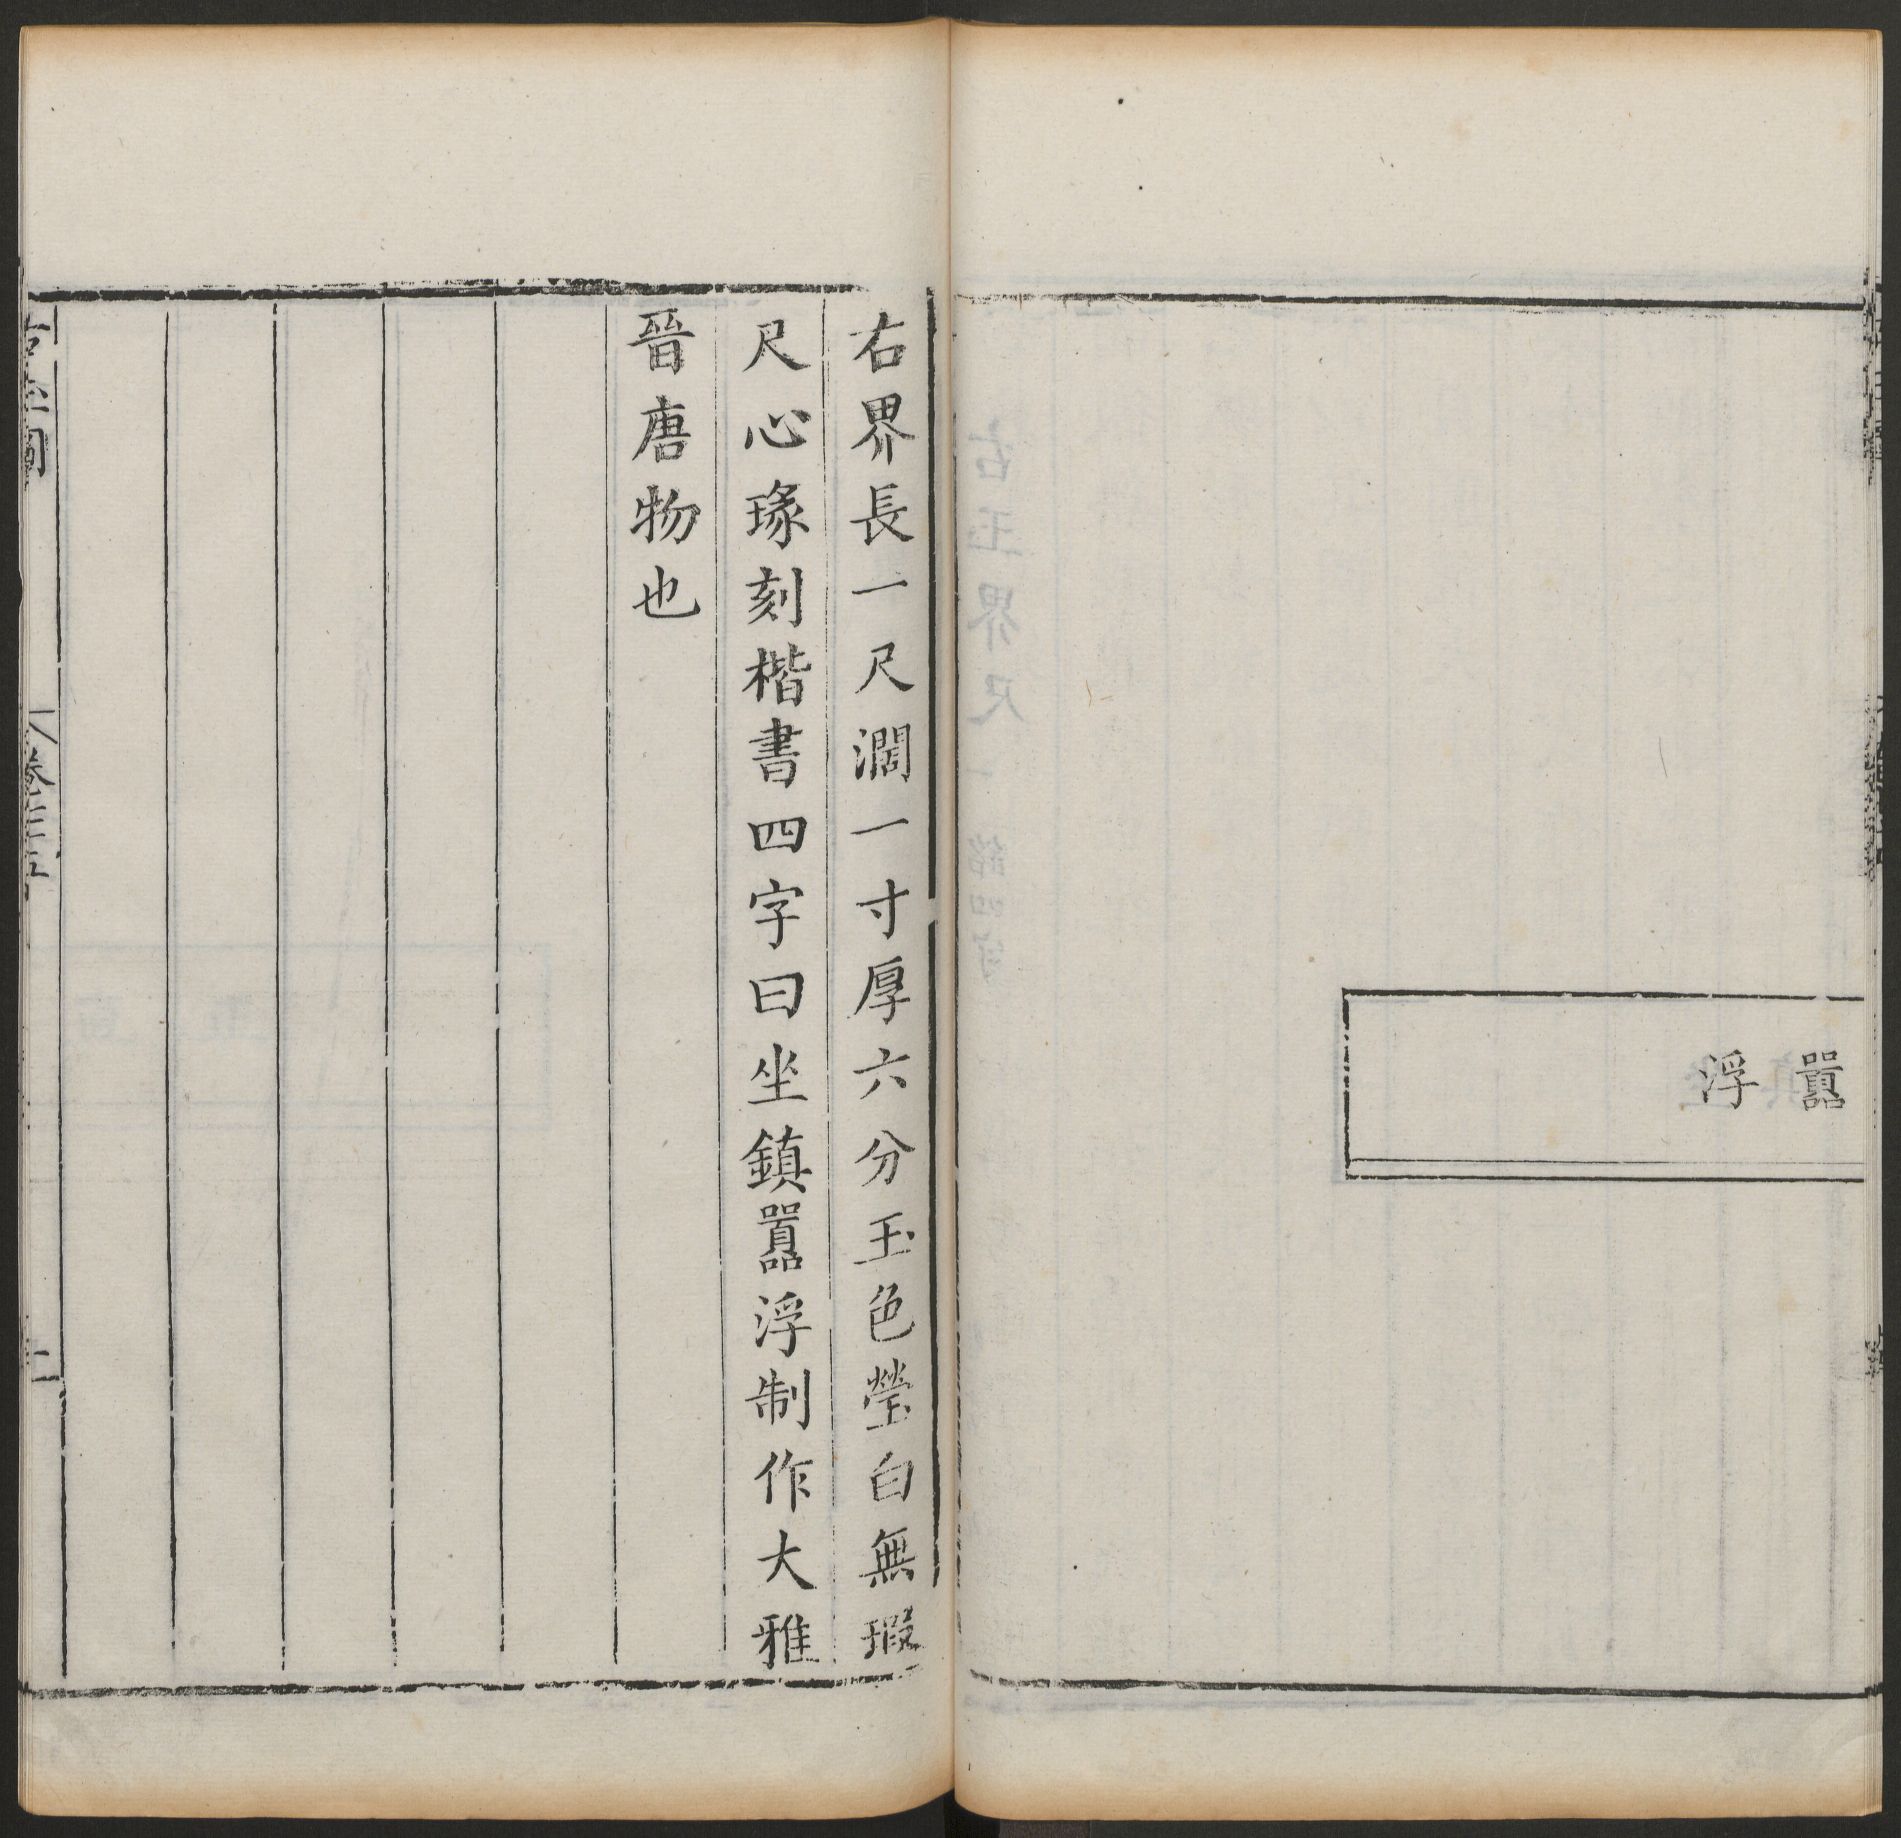 囂浮
右界長一尺濶一寸厚六分玉色瑩白無瑕
尺心瑑刻楷書四字曰坐鎮囂浮制作大雅
晉唐物也
古玉圖
卷三十五
二